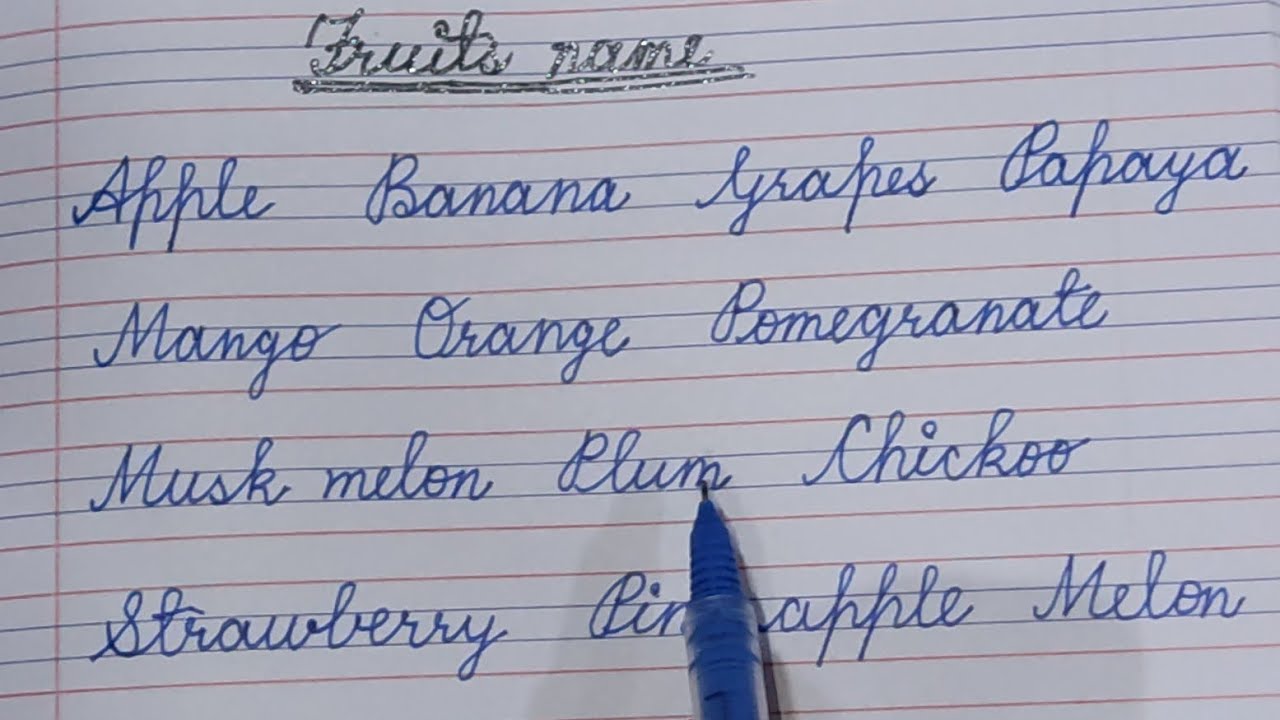 Fruits name
Apple Banana Grapes Papaya
Mango Orange Pomegranate
Musk melon Plum Chickoo
Strawberry Pineapple Melon